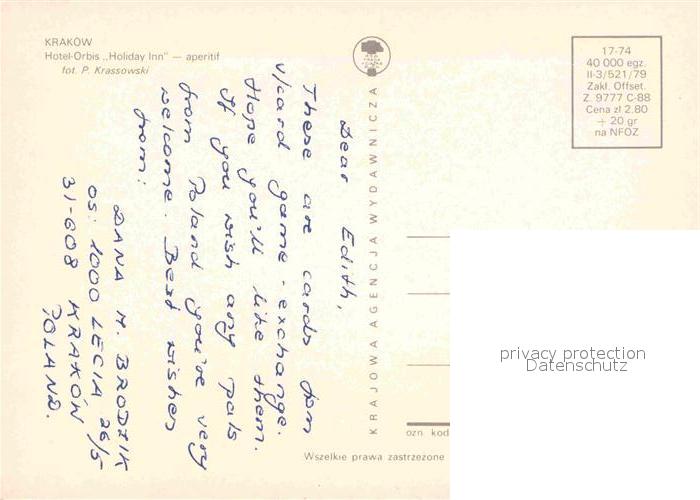 KRAKÓW
Hotel-Orbis „Holiday Inn" — aperitif
fot. P. Krassowski
17-74
40 000 egz.
II-3/521/79
Zakł. Offset.
Z. 9777 C-88
Cena zł 2.80
+ 20 gr
na NFOZ
KRAJOWA AGENCJA WYDAWNICZA
Dear Edith,
These are cards from
v/card game - exchange.
Hope you'll like them.
If you wish any pals
from Poland you're very
welcome. Best wishes
from:
DANA M. BRODZIK
OS. 1000 LECIA 26/5
31-608 KRAKÓW
POLAND.
ozn. kod
Wszelkie prawa zastrzeżone
privacy protection
Datenschutz